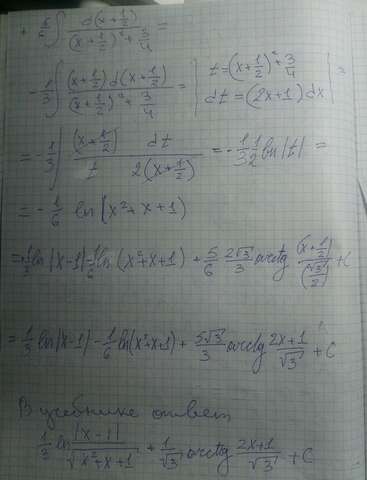 + 5/6 ∫ d(x+1/2) / ((x+1/2)²+3/4) =
-1/3 ∫ (x+1/2) d(x+1/2) / ((x+1/2)²+3/4) = | t=(x+1/2)²+3/4 dt=(2x+1)dx | =
= -1/3 ∫ (x+1/2)/t dt/(2(x+1/2)) = -1/3 1/2 ln|t| =
= -1/6 ln(x²+x+1)
= 1/3 ln|x-1| - 1/6 ln(x²+x+1) + 5/6 2√3/3 arctg (x+1/2)/(√3/2) + C
= 1/3 ln|x-1| - 1/6 ln(x²+x+1) + 5√3/3 arctg (2x+1)/√3 + C
В учебнике ответ
1/3 ln |x-1|/√(x²+x+1) + 1/√3 arctg (2x+1)/√3 + C